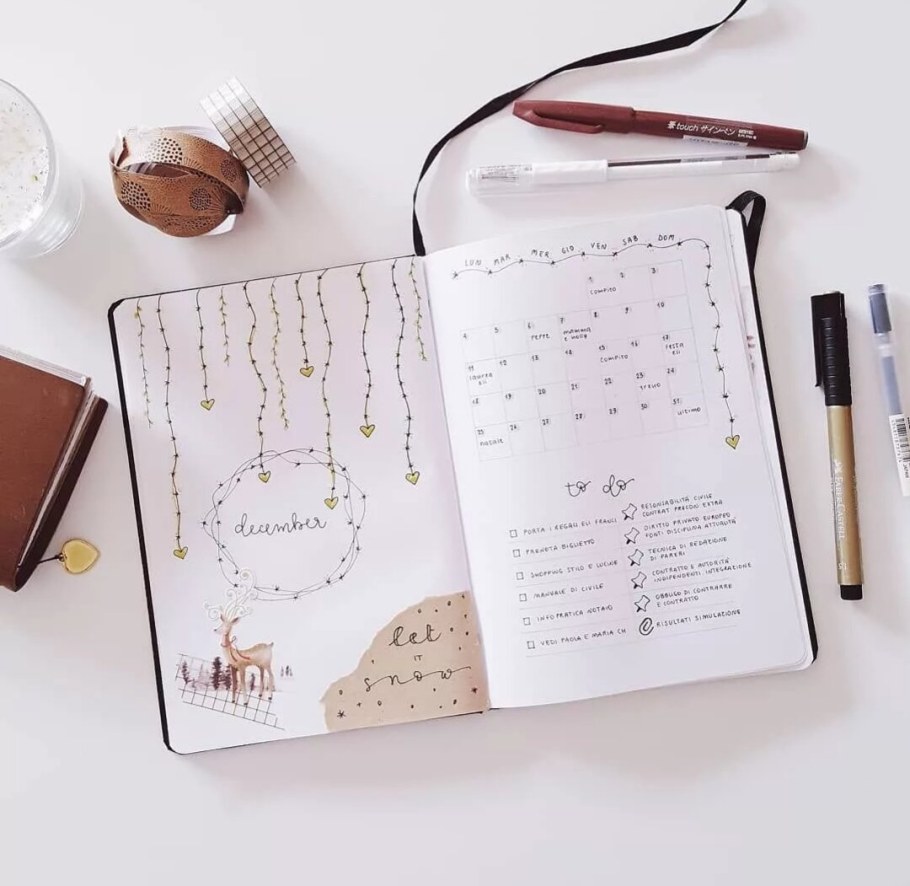 touch サインペン
LUN MAR MER GIO VEN SAB DOM
1 2 3
COMPITO
4 5 6 7 8 9 10
11 12 13 14 15 16 17
COMPITO
FESTA
18 19 20 21 22 23 24
25 26 27 28 29 30 31
NATALE
ULTIMO
december
to do
PORTA I REGALI
PRENOTA BIGLIETTO
SHOPPING STILO E LUCINE
MANUALE DI CIVILE
INFO PRATICA NOTAIO
VEDI PAOLA E MARIA CH
RESPONSABILITÀ CIVILE
CONTRAT. PRECONI EXTRA
DIRITTO PRIVATO EUROPEO
FONTI DISCIPLINA
TECNICA DI REDAZIONE
DI PARERI
CONTRATTO E AUTORITÀ
INDIPENDENTI INTEGRAZIONE
OBBLIGO DI CONTRARRE
E CONTRATTO
RISULTATI SIMULAZIONE
let
IT
snow
FABER-CASTELL